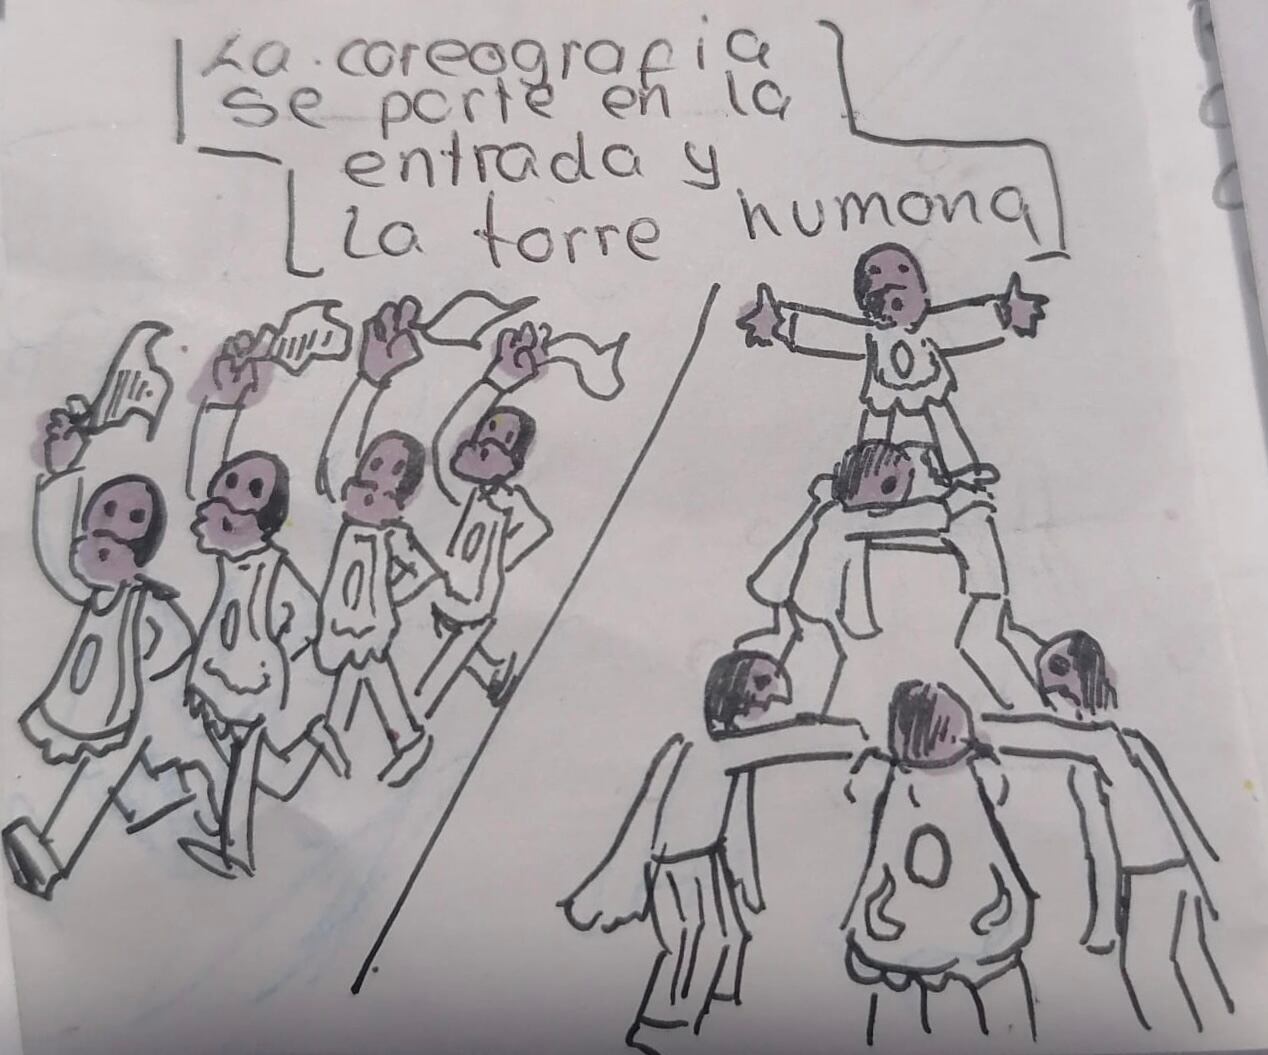 La coreografia
se parte en la
entrada y
La torre humana